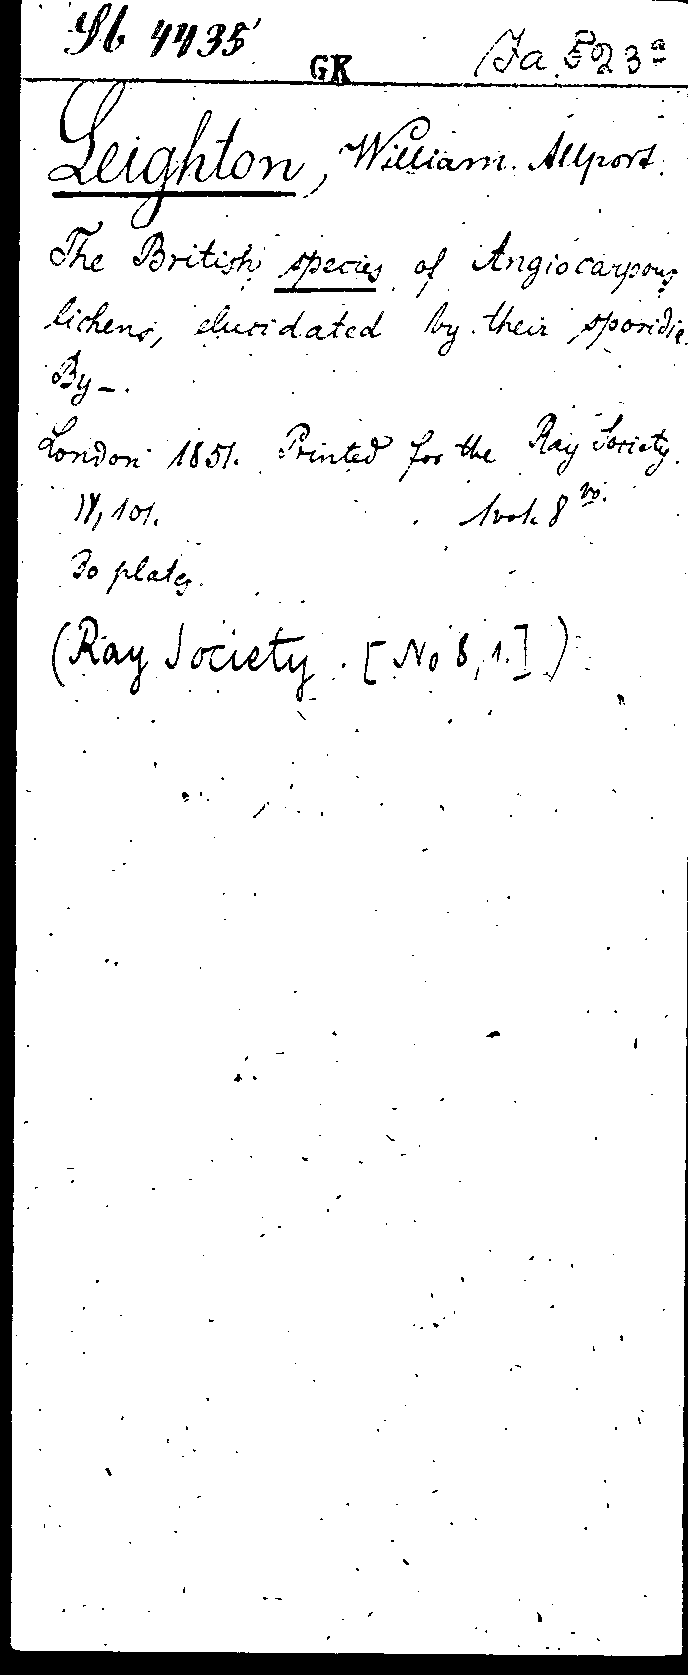 Sb 4435
GK
Ja 523ª
Leighton, William Allport.
The British species of Angiocarpous
lichens, elucidated by their sporidia.
By—.
London 1851. Printed for the Ray Society.
IV, 101. 1 vol. 8vo.
30 plates.
(Ray Society. [No 8, 1.])